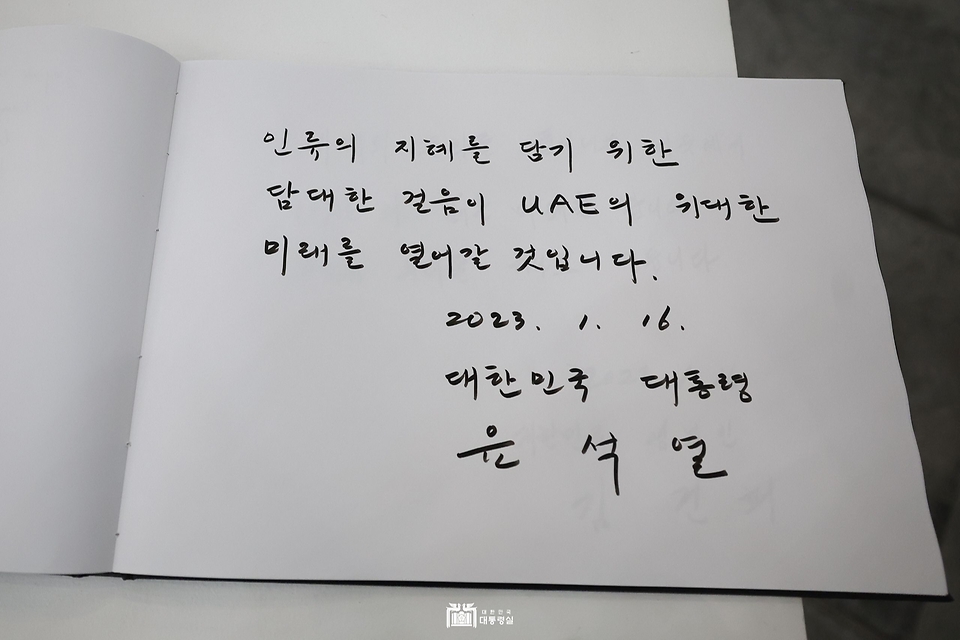 인류의 지혜를 담기 위한
담대한 걸음이 UAE의 위대한
미래를 열어갈 것입니다.
2023. 1. 16.
대한민국 대통령
윤 석 열
대한민국
대통령실